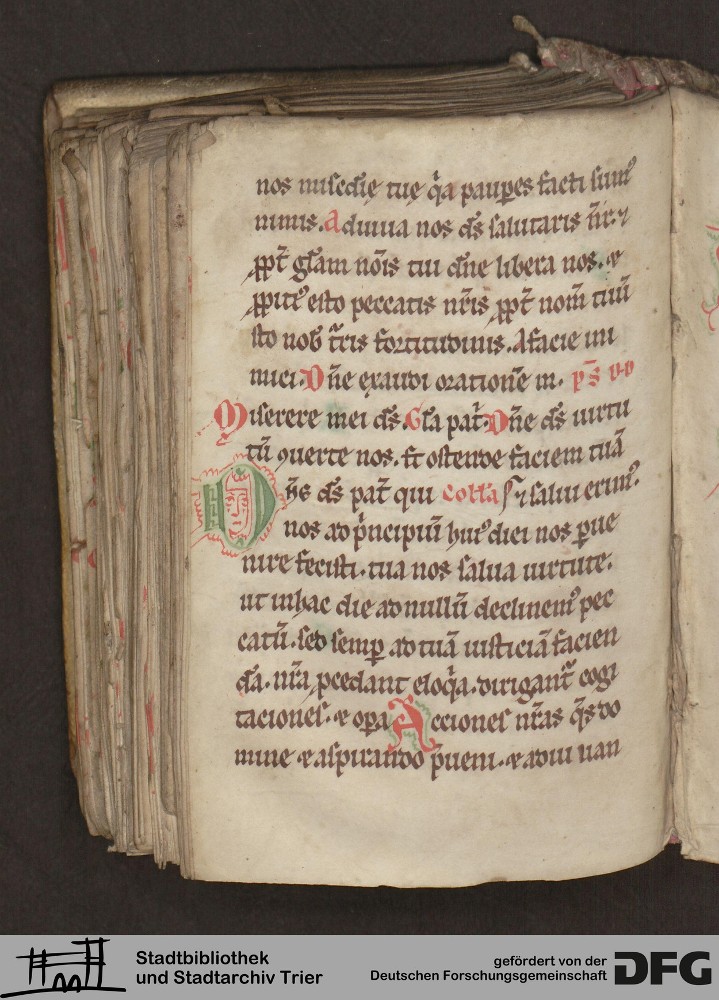 nos misc̄die tue q̇a paup̲es facti sumꝰ
nimis. Adiuua nos ds̄ salutaris nr̄. ⁊
ꝓpt̄ glām nōis tui dn̄e libera nos. ⁊
ꝓpitꝰ esto peccatis nr̄is ꝓpt̄ nom̄ tuū
Esto nob̄ t̄ris fortitudinis. A facie ini
mici. Dn̄e exaudi oratione m. ps̄
Miserere mei ds̄. Gl̄a pat̄. Dn̄e ds̄ uirtu
tū ꝯuerte nos. Et ostende faciem tuā
Dn̄e ds̄ pat̄ qui Coll̄a ⁊ salui erimꝰ.
nos ad p̄ncipiū huiꝰ diei nos ꝑue
nire fecisti. tua nos salua uirtute.
ut in hac die ad nullū declinemꝰ pec
catū. sed semꝑ ad tuā iusticiā facien
da. nr̄a ꝓcedant eloq̇a. dirigant̄ cogi
taciones. ⁊ oꝑa Acciones nr̄as q̄s do
mine ⁊ aspirando p̄ueni. ⁊ adiuuan
Stadtbibliothek
und Stadtarchiv Trier
gefördert von der
Deutschen Forschungsgemeinschaft
DFG